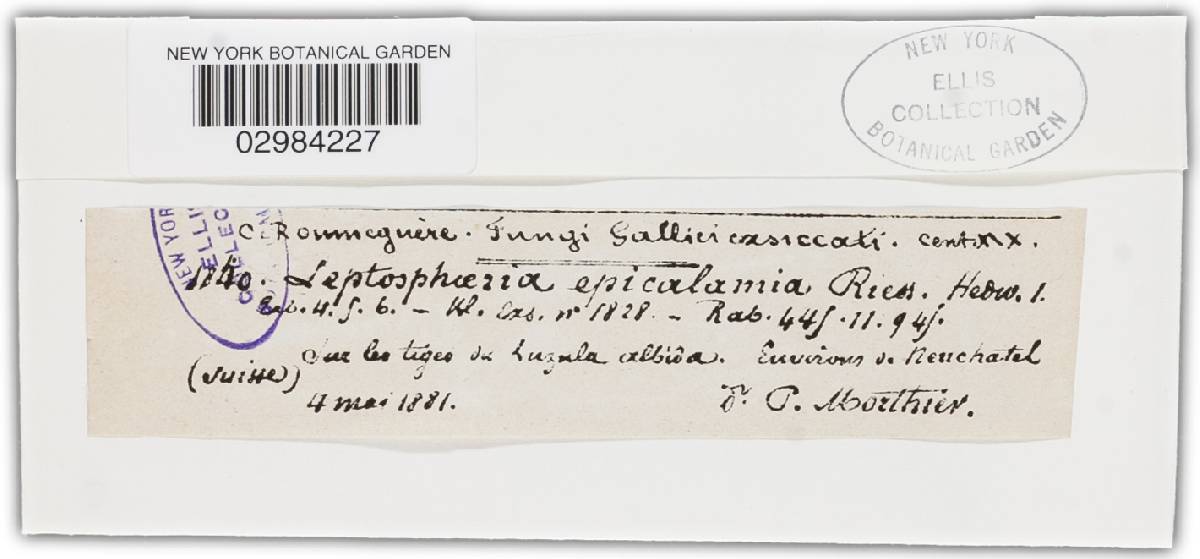 NEW YORK BOTANICAL GARDEN
02984227
NEW YORK
ELLIS
COLLECTION
BOTANICAL GARDEN
NEW YORK
ELLI
COLLEC
C. Roumeguère. Fungi Gallici exsiccati. Cent. XIX.
1840. Leptosphæria epicalamia Riess. Hedw. 1.
4. f. 6. – Kl. Exs. nº 1828. – Rab. 445. 11. 945.
Sur les tiges du Luzula albida. Environs de Neuchatel
(Suisse)
4 mai 1881. Dr. P. Morthier.